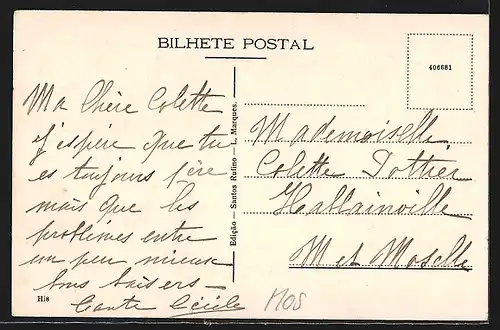 BILHETE POSTAL
406681
Ma Chère Colette
J'espère que tu
es toujours 1ère
mais que les
problèmes entre
un peu mieux
bons baisers —
Tante Cécile
Edição — Santos Rufino — L. Marques.
Mademoiselle
Colette Pothier
Hablainville
M et Moselle
H/8
MOS